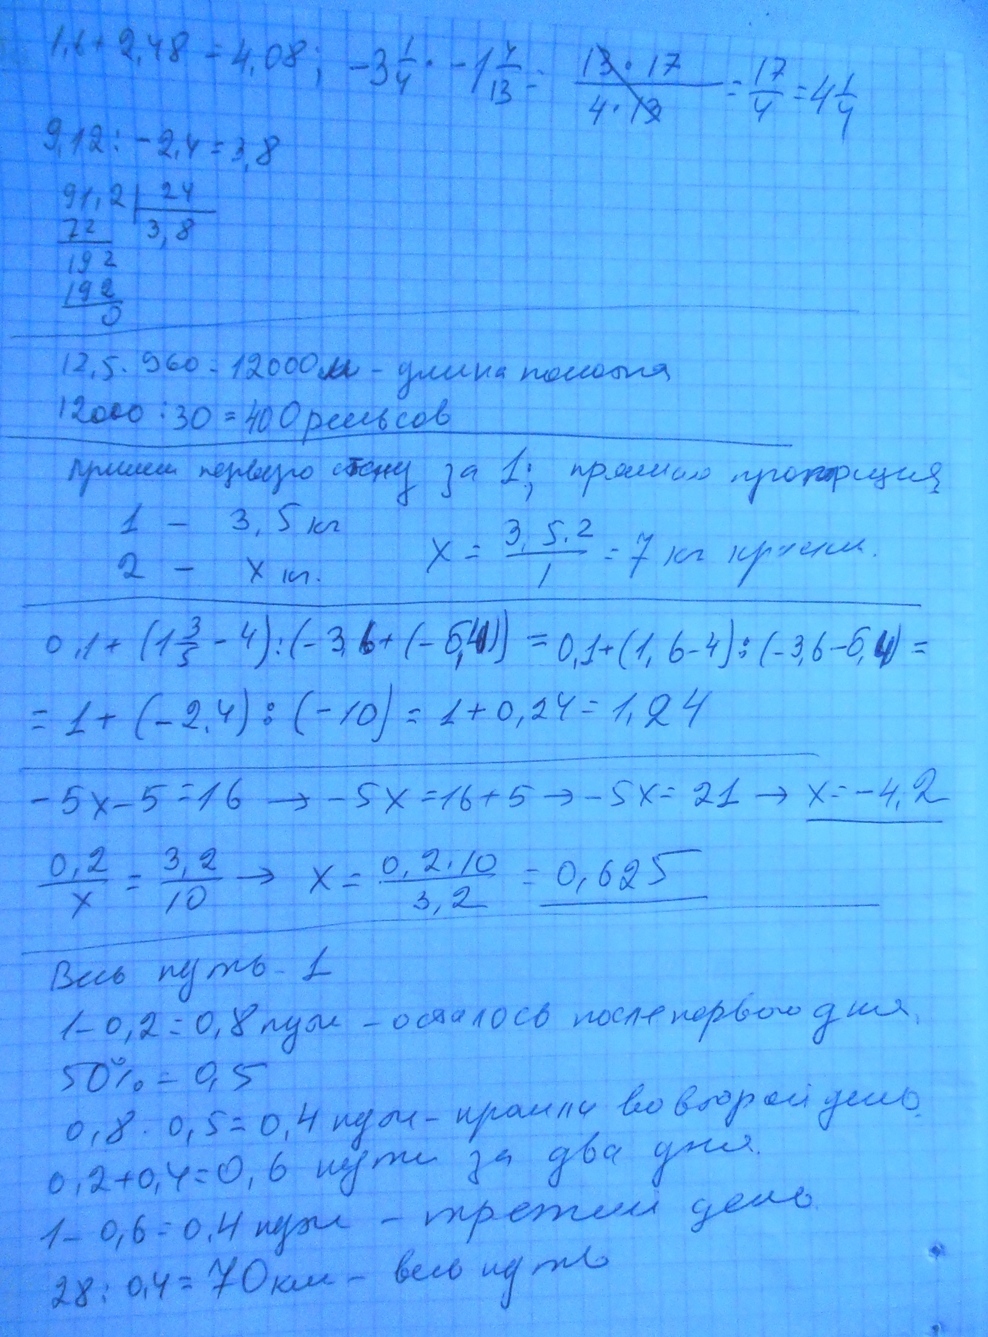 1,6 + 2,48 = 4,08; -3 1/4 · -1 4/13 = 13 · 17 / 4 · 13 = 17/4 = 4 1/4
9,12 : -2,4 = 3,8
91,2 | 24
72 3,8
192
192
0
12,5 · 960 = 12000 м - длина полотна
12000 : 30 = 400 рельсов
Примем первую стену за 1; прямая пропорция
1 - 3,5 кг
2 - x кг.
x = 3,5 · 2 / 1 = 7 кг краски.
0,1 + (1 3/5 - 4) : (-3,6 + (-6,4)) = 0,1 + (1,6 - 4) : (-3,6 - 6,4) =
= 1 + (-2,4) : (-10) = 1 + 0,24 = 1,24
-5x - 5 = 16 → -5x = 16 + 5 → -5x = 21 → x = -4,2
0,2/x = 3,2/10 → x = 0,2 · 10 / 3,2 = 0,625
Весь путь - 1
1 - 0,2 = 0,8 пути - осталось после первого дня.
50% = 0,5
0,8 · 0,5 = 0,4 пути - прошли во второй день.
0,2 + 0,4 = 0,6 пути за два дня.
1 - 0,6 = 0,4 пути - третий день.
28 : 0,4 = 70 км - весь путь